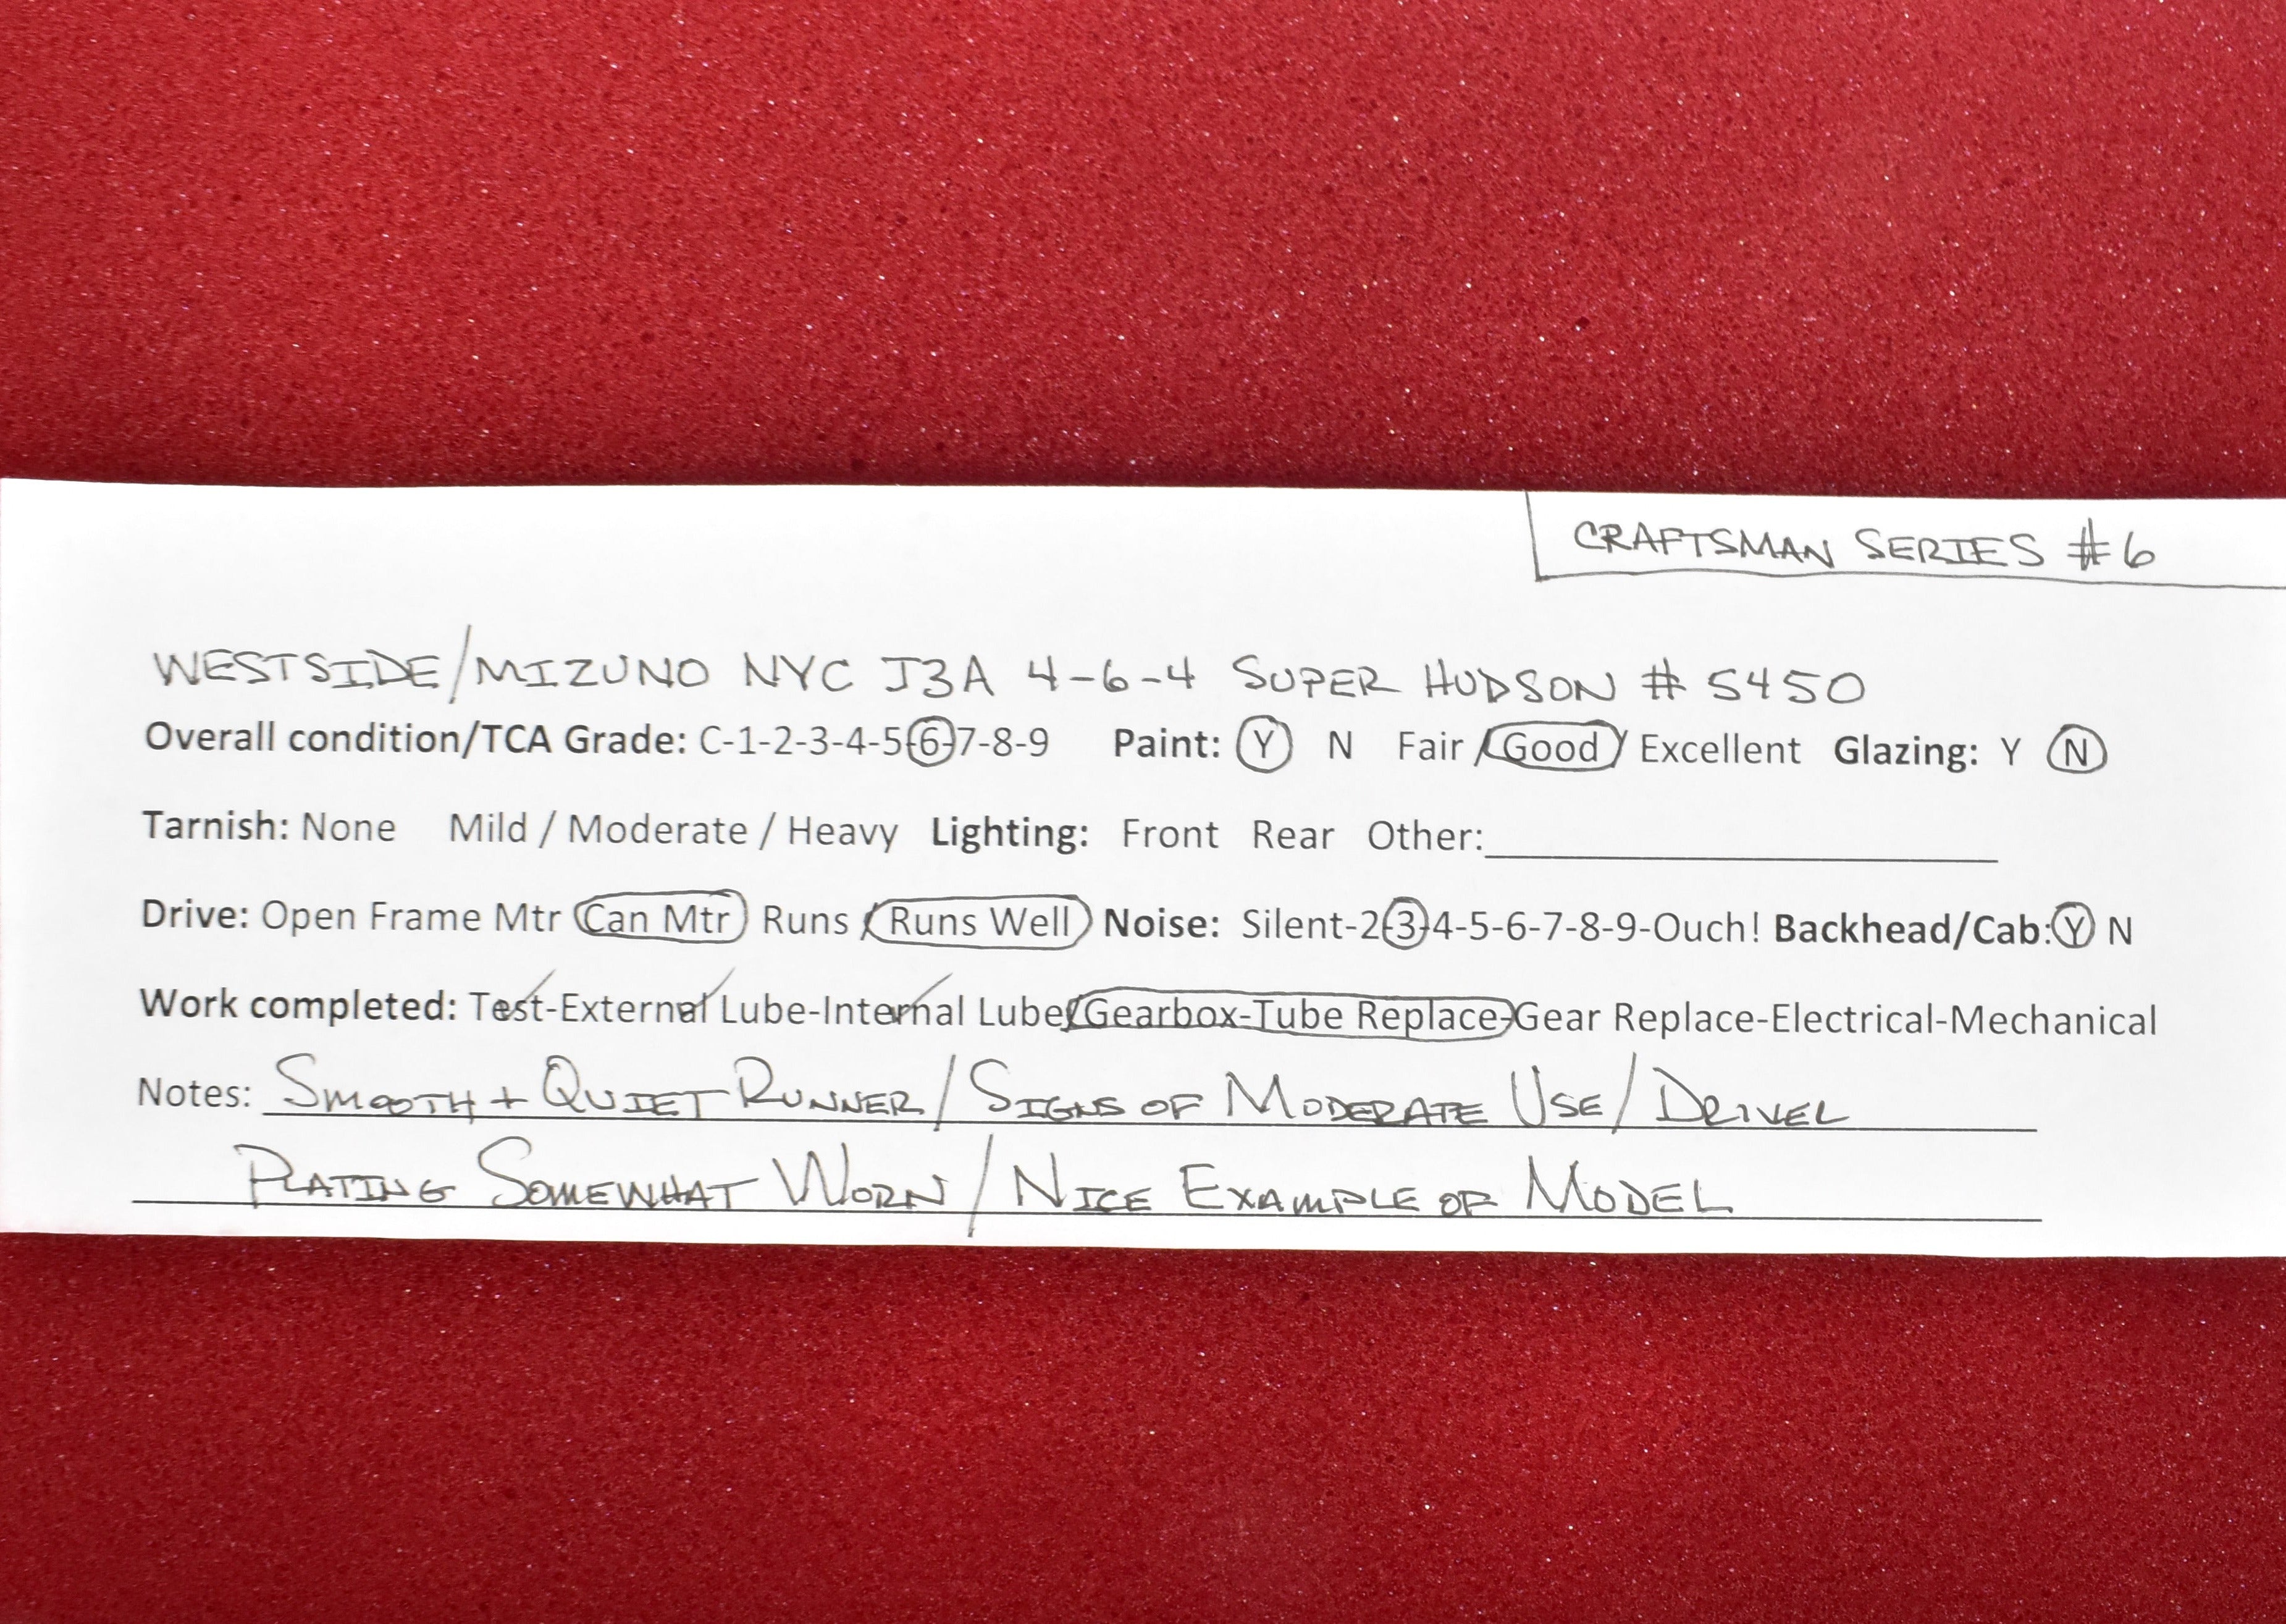 CRAFTSMAN SERIES #6
WESTSIDE/MIZUNO NYC J3A 4-6-4 SUPER HUDSON # 5450
Overall condition/TCA Grade: C-1-2-3-4-5-6-7-8-9 Paint: Y N Fair / Good / Excellent Glazing: Y N
Tarnish: None Mild / Moderate / Heavy Lighting: Front Rear Other:
Drive: Open Frame Mtr Can Mtr Runs / Runs Well Noise: Silent-2-3-4-5-6-7-8-9-Ouch! Backhead/Cab: Y N
Work completed: Test-External Lube-Internal Lube-Gearbox-Tube Replace-Gear Replace-Electrical-Mechanical
Notes: SMOOTH + QUIET RUNNER / SIGNS OF MODERATE USE / DRIVER
PLATING SOMEWHAT WORN / NICE EXAMPLE OF MODEL